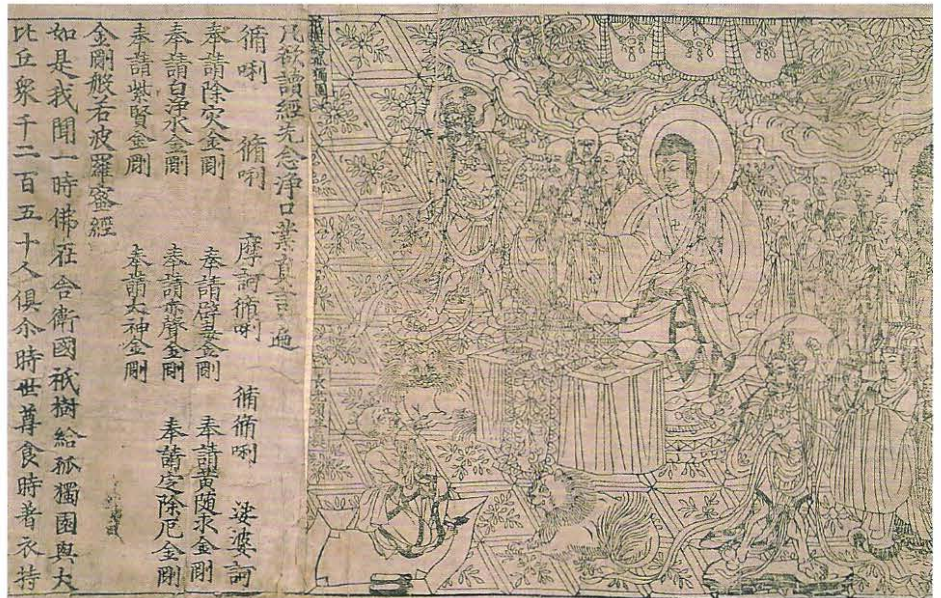 祇樹給孤獨園
凡欲讀經先念淨口業真言一遍
脩唎 脩唎 摩訶脩唎 脩脩唎 娑婆訶
奉請除灾金剛 奉請辟毒金剛 奉請黃随求金剛
奉請白淨水金剛 奉請赤聲金剛 奉請定除厄金剛
奉請紫賢金剛 奉請大神金剛
金剛般若波羅蜜經
如是我聞一時佛在舍衛國祇樹給孤獨園與大
比丘衆千二百五十人俱尒時世尊食時著衣持